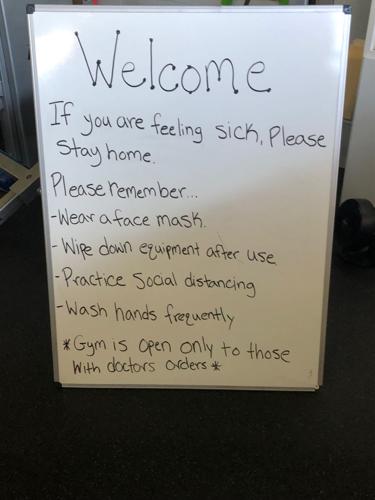 Welcome
If you are feeling sick, Please
Stay home.
Please remember...
-Wear a face mask.
-Wipe down equipment after use
-Practice Social distancing
-Wash hands frequently
*Gym is open only to those
With doctors orders*